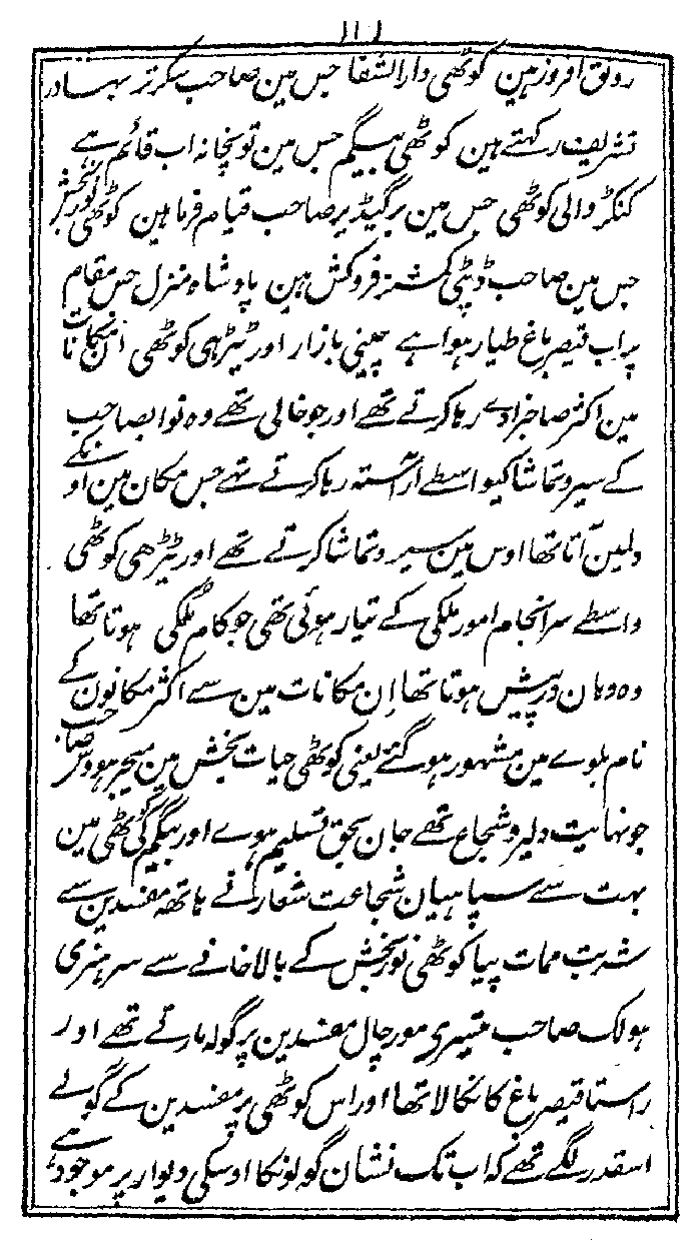 رونق افروز ہین کوٹھی دارالشفا جس مین صاحب سکرتر بہادر
تشریف رکہتے ہین کوٹھی بیگم جس مین توپخانہ اب قائم ہے
کنکڑ والی کوٹھی جس مین برگیڈیر صاحب قیام فرما ہین کوٹھی نور بخش
جس مین صاحب ڈپٹی کمشنر فروکش ہین پادشاہ منزل جس مقام
پر اب قیصر باغ طیار ہوا ہے چینی بازار اور ٹیڑہی کوٹھی ان مکانات
مین اکثر صاحبزادے رہا کرتے تھے اور جو خالی تھے وہ نوابصاحب
کے سیر و تماشا کیواسطے آراستہ رہا کرتے تہے جس مکان مین اونکے
دلمین آتا تھا اوس مین سیر و تماشا کرتے تھے اور ٹیڑھی کوٹھی
واسطے سرانجام امور ملکی کے تیار ہوئی تھی جو کام ملکی ہوتا تھا
وہ وہان درپیش ہوتا تھا اِن مکانات مین سے اکثر مکانون کے
نام بلوے مین مشہور ہو گئے یعنی کوٹھی حیات بخش مین میجر ہڈسن صاحب
جو نہایت دلیر و شجاع تھے جان بحق تسلیم ہوے اور بیگم کی کوٹھی مین
بہت سے سپاہیان شجاعت شعار نے ہاتھ مفسدین سے
شربت ممات پیا کوٹھی نور بخش کے بالاخانے سے سر ہنری
ہولاک صاحب تیسری مورچال مفسدین پر گولہ مارتے تھے اور
راستا قیصر باغ کا نکالا تھا اور اس کوٹھی پر مفسدین کے گولے
اسقدر لگے تھے کہ اب تک نشان گولونکا اوسکی دیوار پر موجود ہے